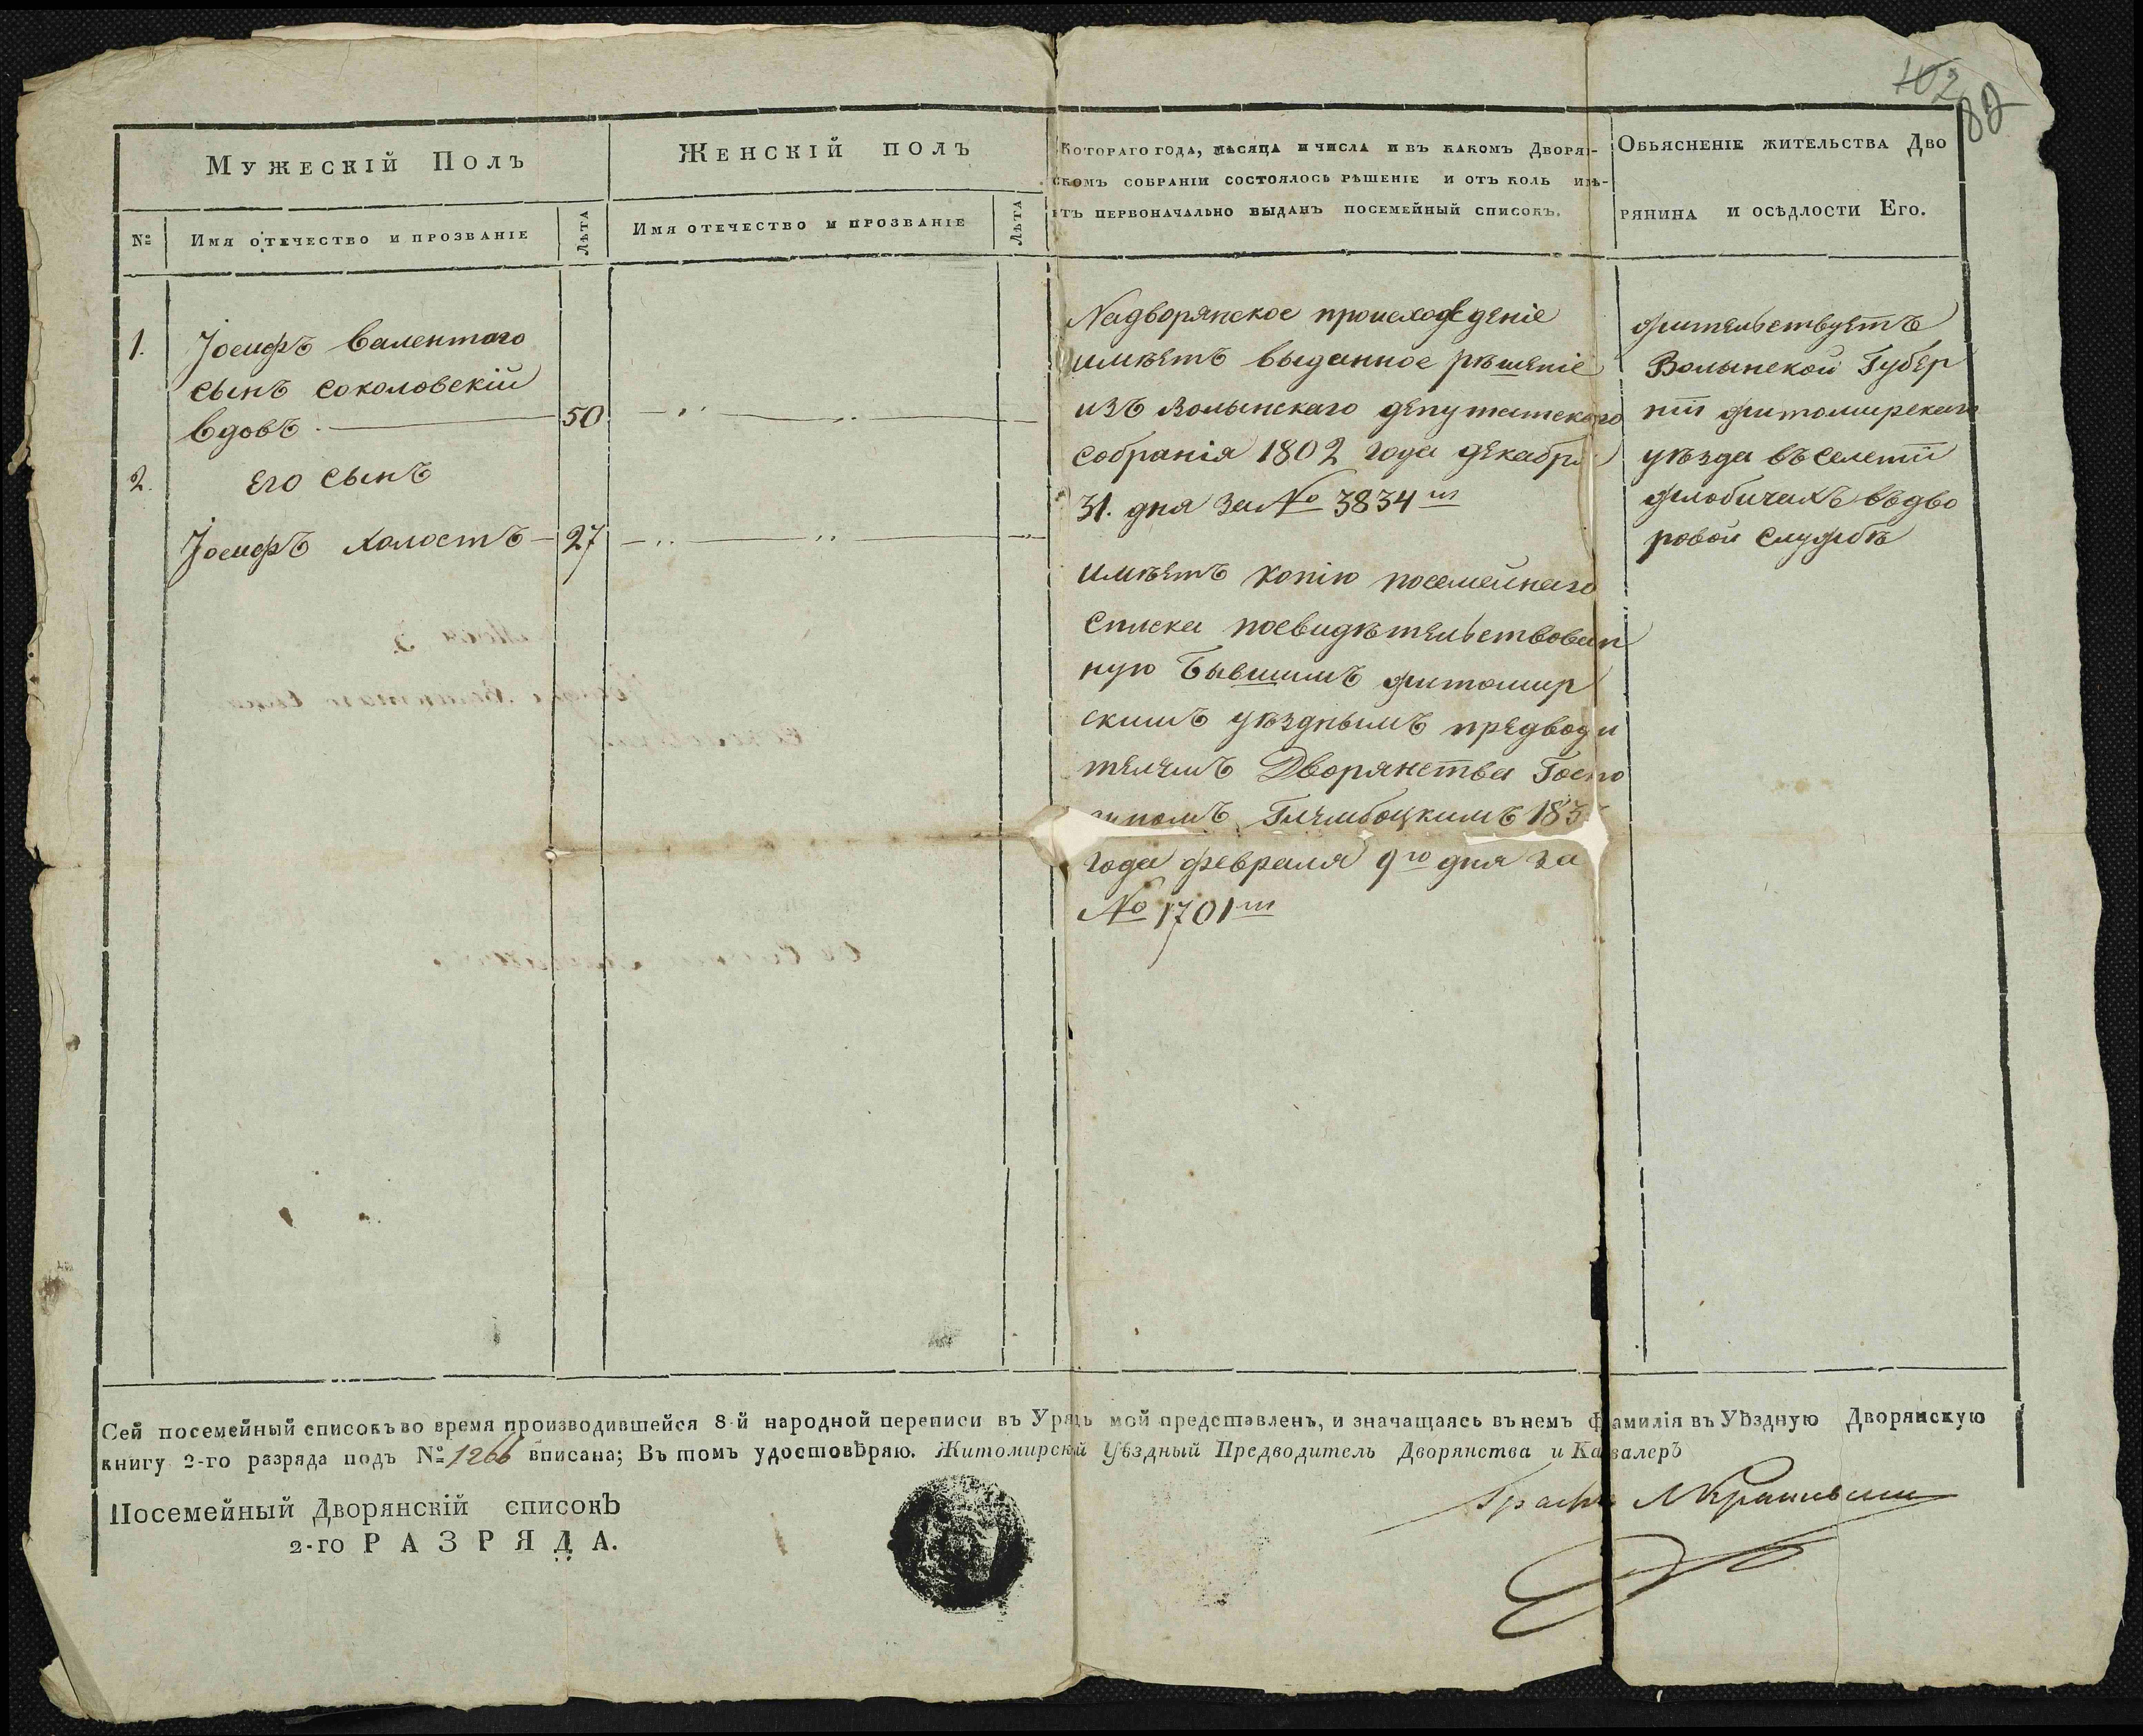 102
82
Мужескій Полъ
Женскій полъ
Котораго года, мѣсяца и числа и въ какомъ Дворян-
скомъ собраніи состоялось рѣшеніе и отъ коль имѣ-
етъ первоначально выданъ посемейный списокъ.
Обьясненіе жительства Дво
рянина и осѣдлости Его.
№
Имя отечество и прозваніе
Лѣта
Имя отечество и прозваніе
Лѣта
1. Іосифъ Валентого
сынъ Соколовскій
вдовъ 50
2. Его сынъ
Іосифъ холостъ 27
Надворянское происхожденіе
имѣетъ выданное рѣшеніе
изъ Волынскаго депутатскаго
собранія 1802 года декабря
31. дня за № 3834 ш
имѣетъ копію посемейнаго
списка посвидѣтельствован
ную бывшимъ житомир
скимъ уѣзднымъ предводи
телемъ Дворянства Госпо
Глембоцкимъ 183
года февраля 9го дня за
№ 1701 ш
жительствуетъ
Волынской Губер
ніи житомирскаго
уѣзда въ селеніи
въ дво
ровой службѣ
Сей посемейный списокъ во время производившейся 8-й народной переписи въ Урядъ мой представленъ, и значащаясь въ немъ фамилія въ Уѣздную Дворянскую
книгу 2-го разряда подъ № 1266 вписана; Въ томъ удостовѣряю. Житомирскій Уѣздный Предводитель Дворянства и Кавалеръ
Графъ
Посемейный Дворянскій списокъ
2-го РАЗРЯДА.